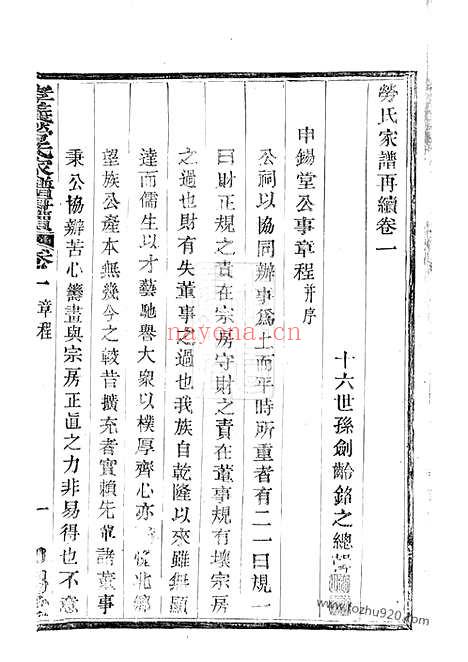 勞氏家譜再續卷一
十六世孫劍齡銘之總
申錫堂公事章程并序
公祠以協同辦事爲上而平時所重者有二一曰規一
曰財正規之責在宗房守財之責在董事規有壞宗房
之過也財有失董事之過也我族自乾隆以來雖無顯
達而儒生以才藝馳譽大衆以樸厚齊心亦從北鄉
望族公產本無幾今之較昔擴充者實賴先輩諸董事
秉公協辦苦心籌畫與宗房正直之力非易得也不意
氏家譜再續 卷一 章程
一
nayona.cn
www.fozhu920.com